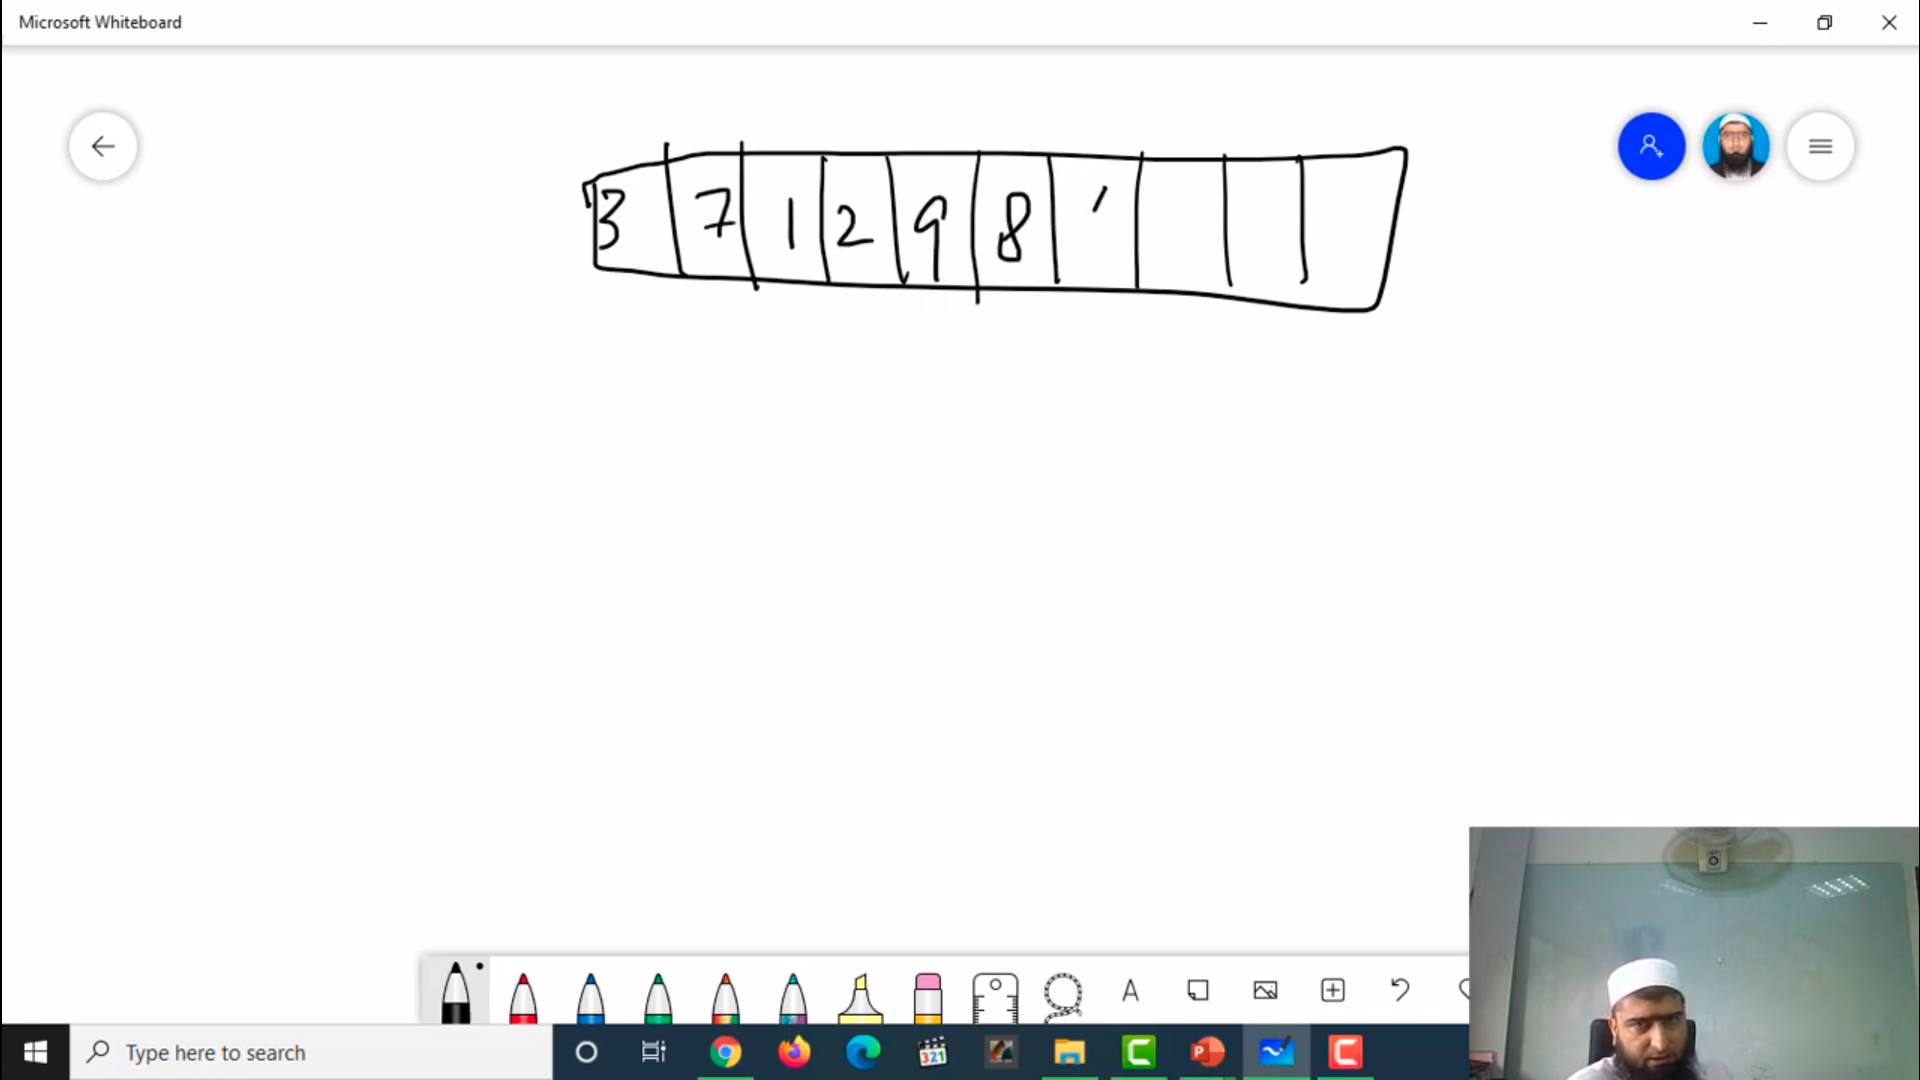 Microsoft Whiteboard
3 7 1 2 9 8
A
Type here to search
321